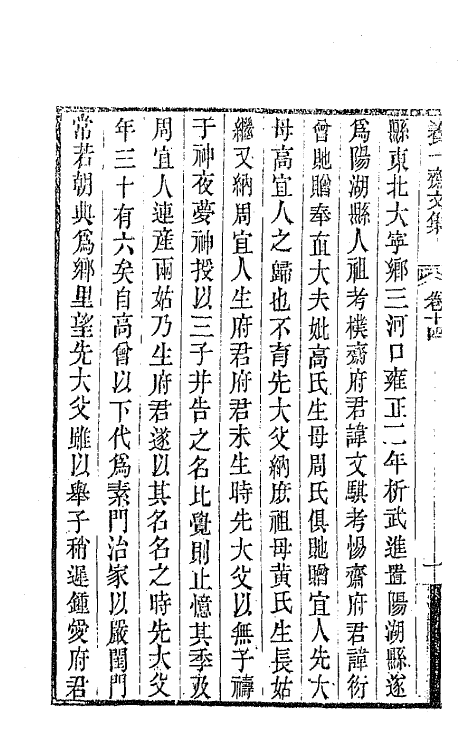 養一齋文集　卷十四　一
縣東北大寧鄉三河口雍正二年析武進置陽湖縣遂
爲陽湖縣人祖考樸齋府君諱文騏考惕齋府君諱衍
曾貤贈奉直大夫妣高氏生母周氏俱貤贈宜人先大
母高宜人之歸也不育先大父納庶祖母黃氏生長姑
繼又納周宜人生府君府君未生時先大父以無子禱
于神夜夢神授以三子并告之名比覺則止憶其季及
周宜人連產兩姑乃生府君遂以其名名之時先大父
年三十有六矣自高曾以下代爲素門治家以嚴閨門
常若朝典爲鄉里望先大父雖以舉子稍遲鍾愛府君